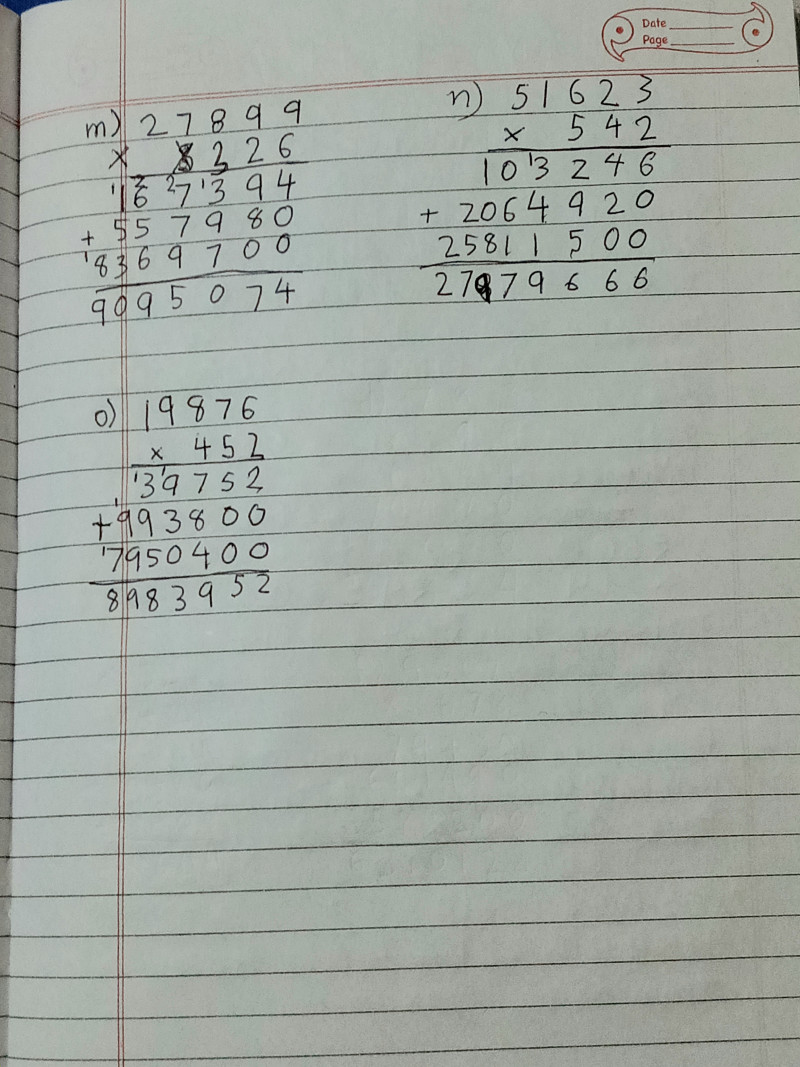 Date
Page
m) 27899
x 326
167394
+ 557980
8369700
9095074
n) 51623
x 542
103246
+ 2064920
25811500
27979666
o) 19876
x 452
39752
+ 993800
7950400
8983952